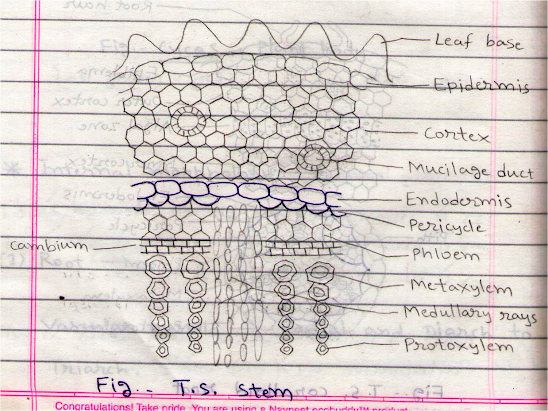 Leaf base
Epidermis
Cortex
Mucilage duct
Endodermis
Pericycle
cambium
Phloem
Metaxylem
Medullary rays
Protoxylem
Fig :- T.S. stem
Congratulations! Take pride. You are using a Navneet